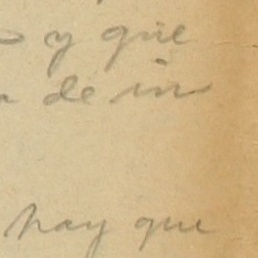 y que
de in
hay que